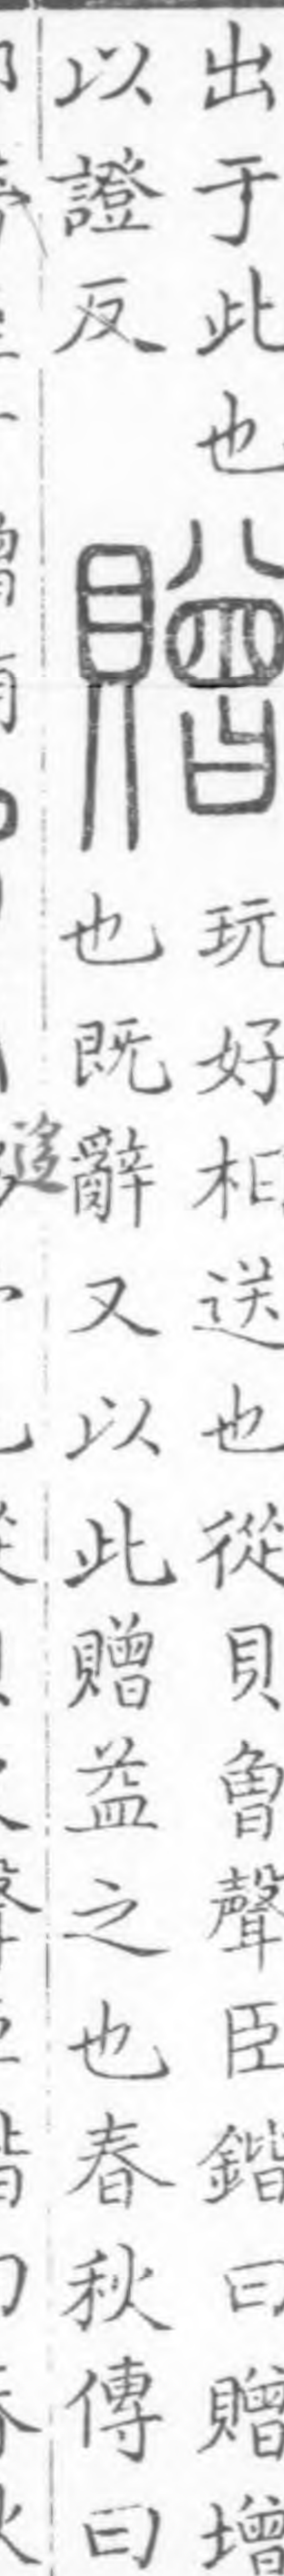 出于此也
以證反
贈
玩好相送也從貝曾聲臣鍇曰贈增
也既辭又以此贈益之也春秋傳曰